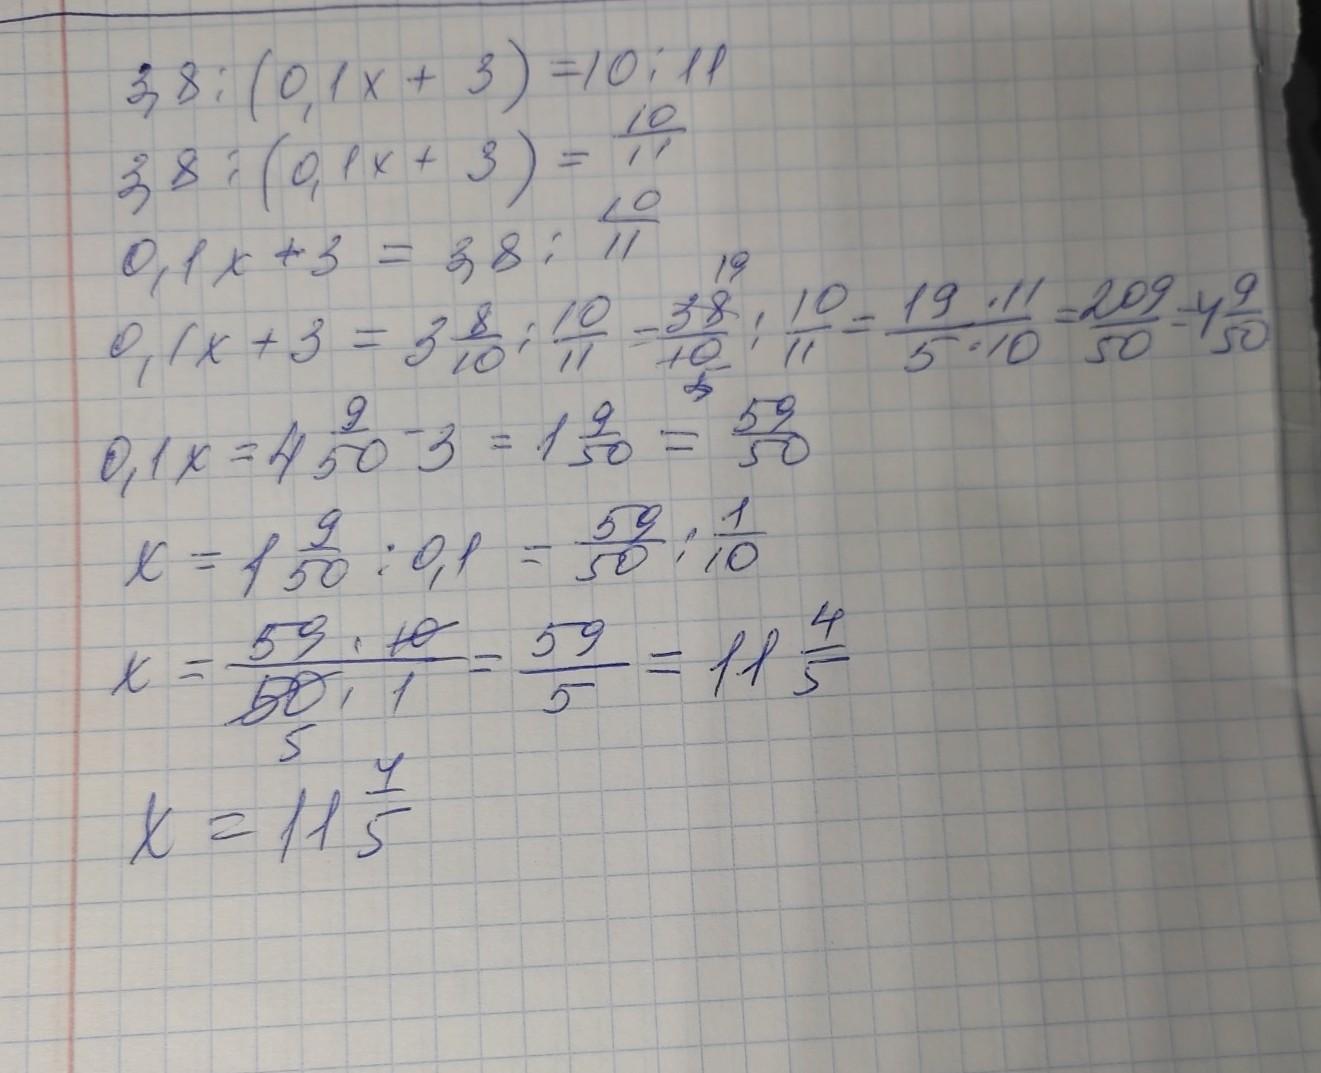 3,8 : (0,1x + 3) = 10 : 11
3,8 : (0,1x + 3) = 10/11
0,1x + 3 = 3,8 : 10/11
0,1x + 3 = 3 8/10 : 10/11 = 38/10 19 5 : 10/11 = 19 · 11/5 · 10 = 209/50 = 4 9/50
0,1x = 4 9/50 - 3 = 1 9/50 = 59/50
x = 1 9/50 : 0,1 = 59/50 : 1/10
x = 59 · 10/50 · 1 = 59/5 = 11 4/5
5
x = 11 4/5